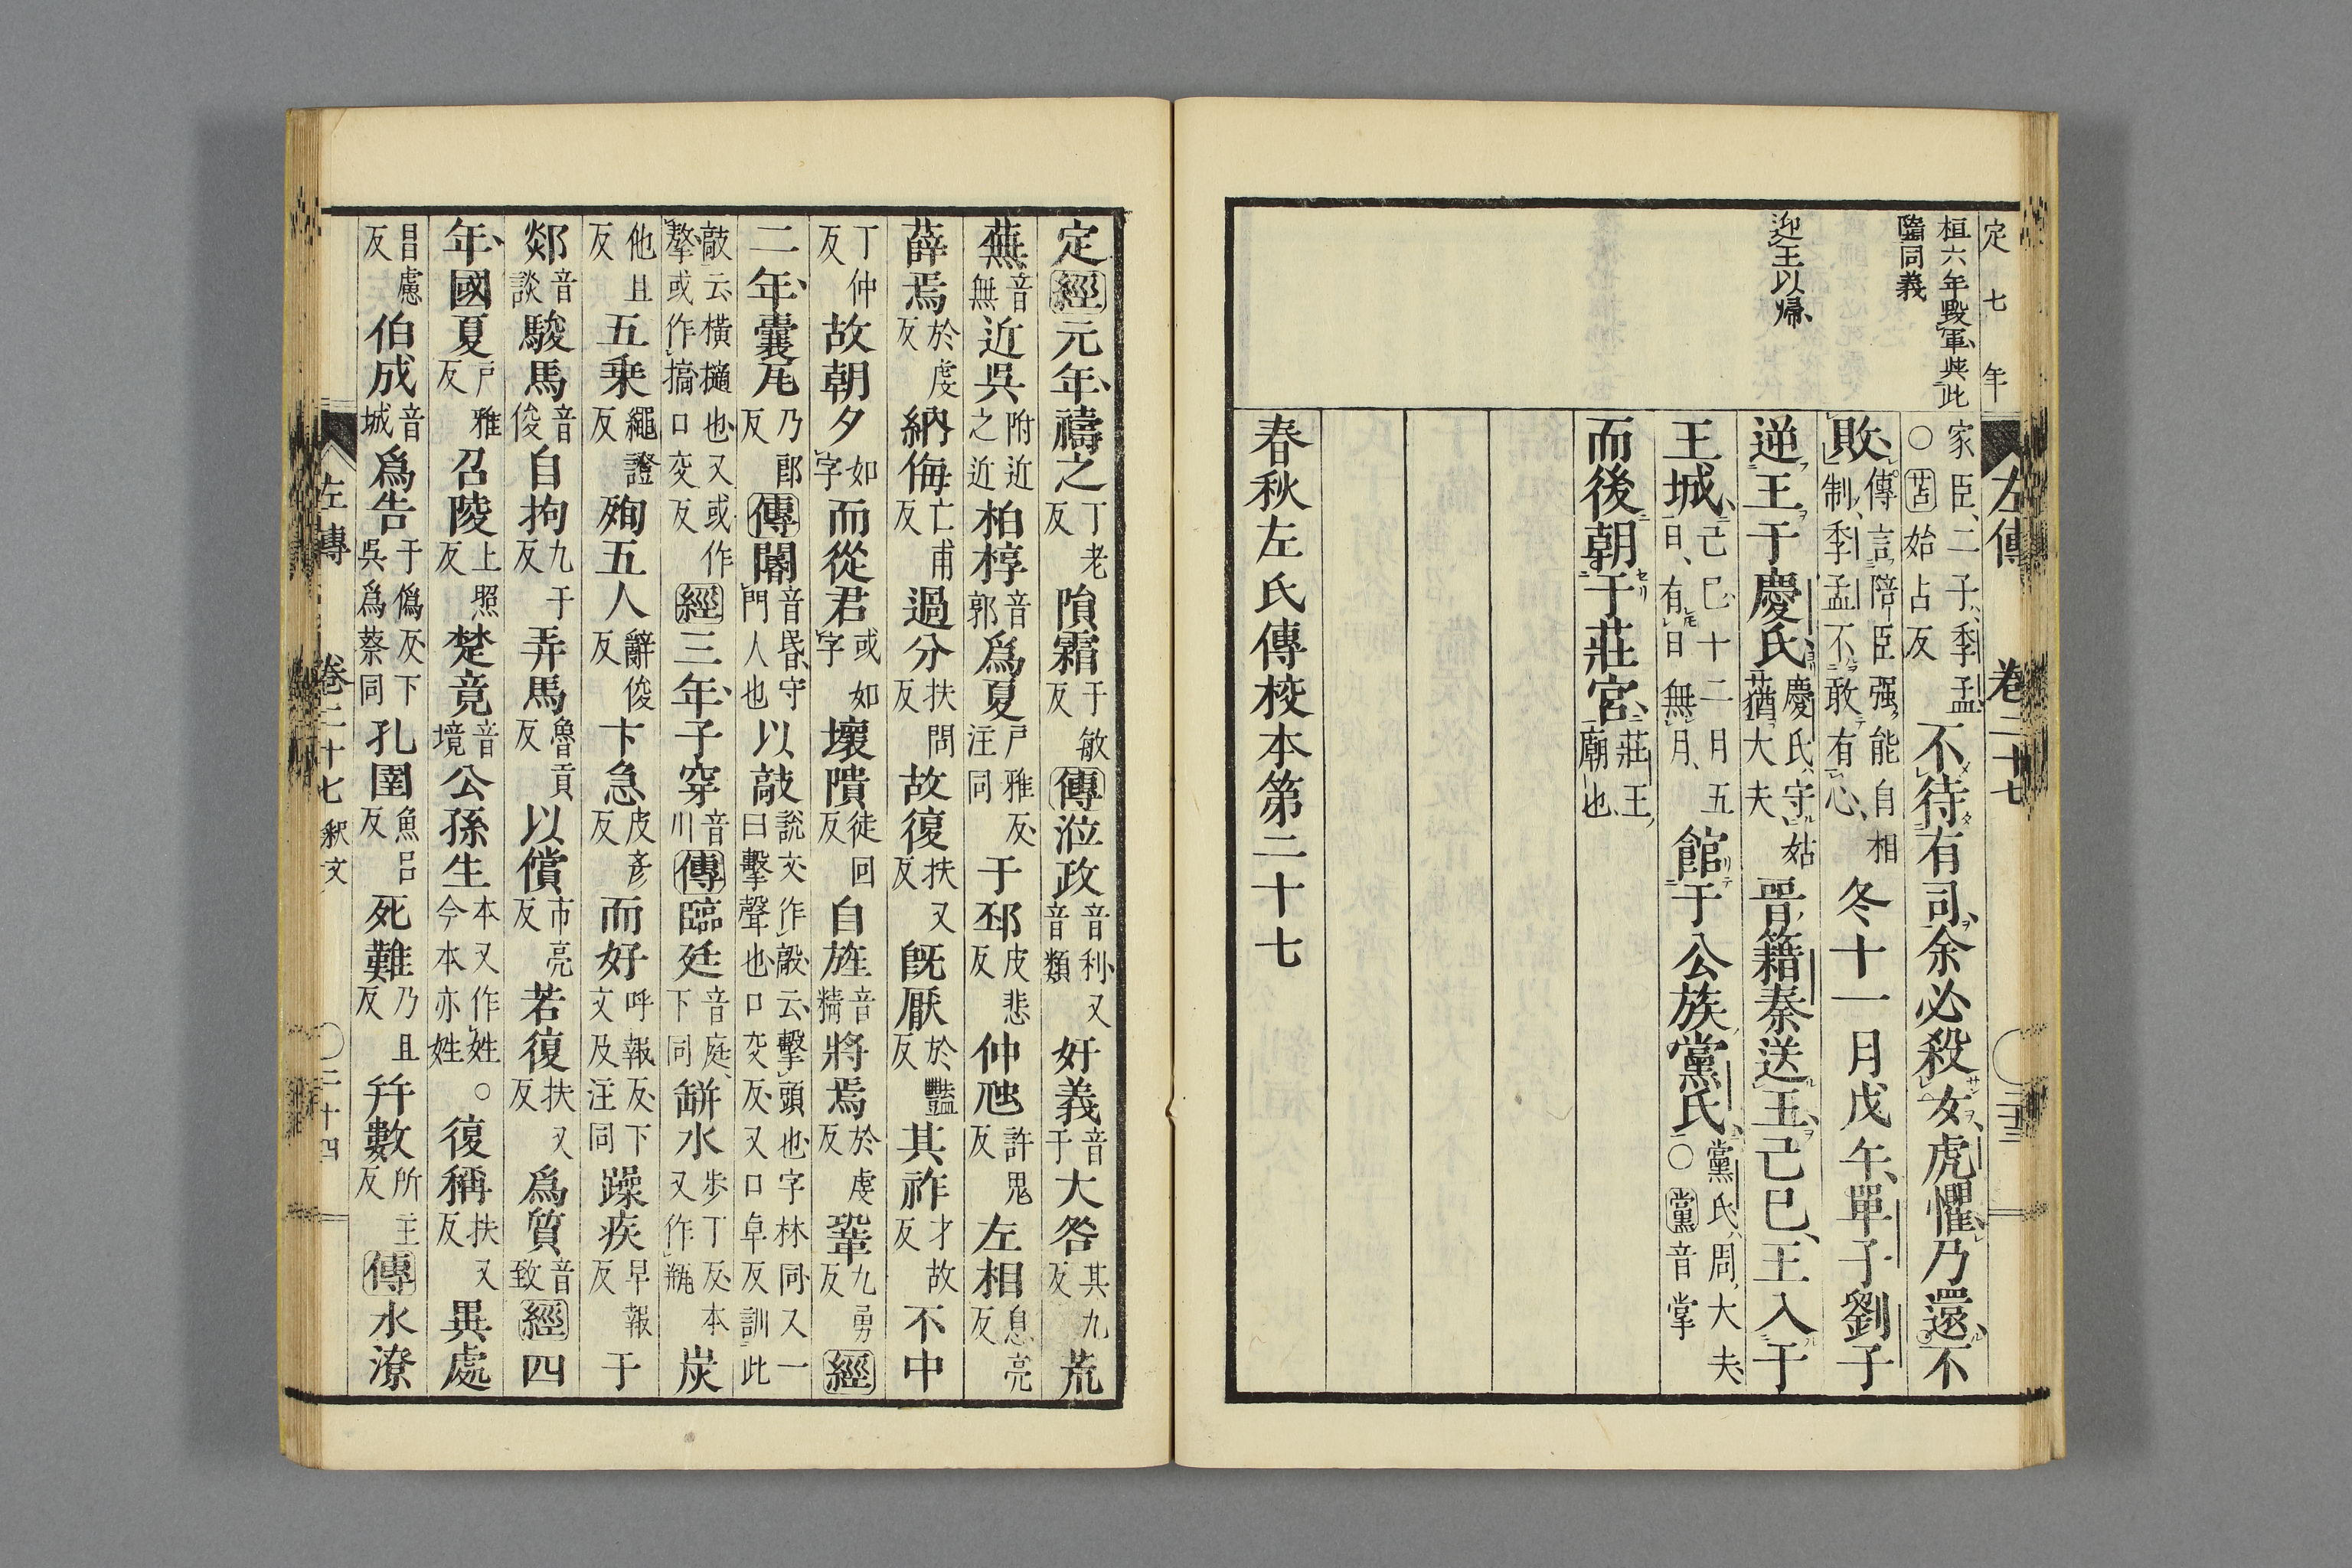 定七年
桓六年毀軍與此
隨同義
迎王以帰
左傳 卷二十七
家臣二子季孟
○苫始占反
不待有司余必殺女虎懼乃還不
敗
傳言陪臣强能自相
制季孟不敢有心
冬十一月戊午單子劉子
逆王于慶氏
慶氏守姑
蕕大夫
晋籍秦送王己巳王入于
王城
己巳十二月五
日有日無月
館于公族黨氏
黨氏周大夫
○黨音掌
而後朝于莊宮
莊王
廟也
春秋左氏傳校本第二十七
定經元年禱之
丁老
反
隕霜
于敏
反
傳涖政
音利又
音類
好義
音
于
大咎
其九
反
荒
蕪
音
無
近吳
附近
之近
柏椁
音
郭
爲夏
戸雅反
注同
于邳
皮悲
反
仲虺
許鬼
反
左相
息亮
反
薛焉
於虔
反
納侮
亡甫
反
過分
扶問
反
故復
扶又
反
既厭
於豔
反
其祚
才故
反
不中
丁仲
反
故朝夕
如
字
而從君
或如
字
壞隤
徒回
反
自旌
音
精
將焉
於虔
反
鞏
九勇
反
經
二年囊瓦
乃郎
反
傳閽
音昏守
門人也
以敲
說文作毃云擊頭也字林同又一
曰擊聲也口交反又口卓反訓此
敲云橫撾也又或作
㨶或作搞口交反
經三年子穿
音
川
傳臨廷
音庭
下同
缾水
步丁反本
又作瓶
炭
他旦
反
五乘
繩證
反
殉五人
辭俊
反
卞急
皮彦
反
而好
呼報反下
文及注同
躁疾
早報
反
于
郯
音
談
駿馬
音
俊
自拘
九于
反
弄馬
魯貢
反
以償
市亮
反
若復
扶又
反
爲質
音
致
經四
年國夏
戸雅
反
召陵
上照
反
楚竟
音
境
公孫生
本又作姓
今本亦姓
○復稱
扶又
反
異處
昌慮
反
伯成
音
城
爲告
于僞反下
吳爲蔡同
孔圉
魚呂
反
死難
乃旦
反
幷數
所主
反
傳水潦
左傳 卷二十七 釈文 二十四